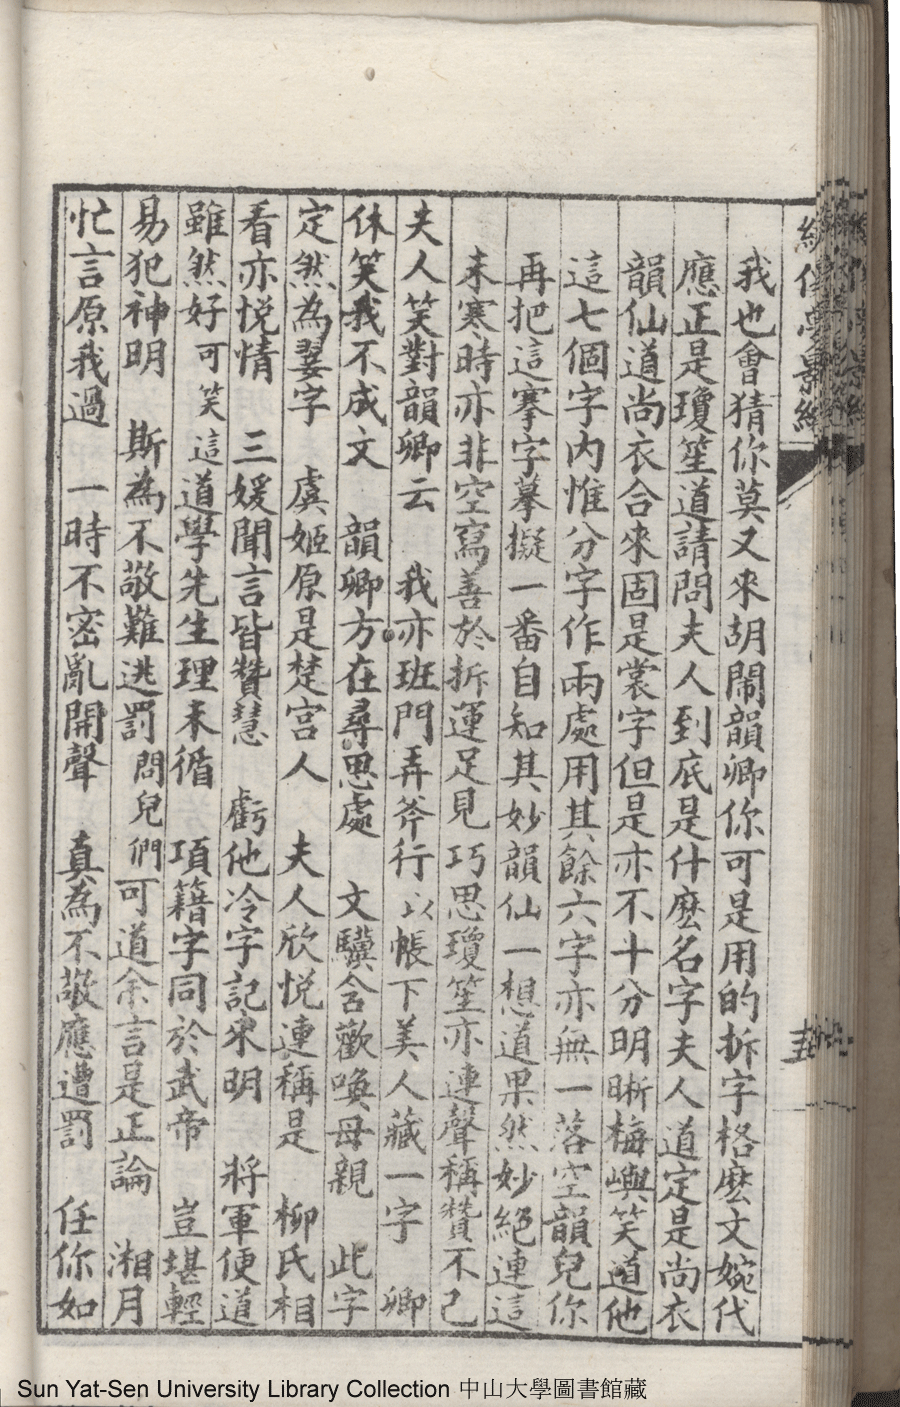 我也會猜你莫又來胡鬧韻卿你可是用的拆字格麼文婉代
應正是瓊笙道請問夫人到底是什麼名字夫人道定是尚衣
韻仙道尚衣合來固是裳字但是亦不十分明晰梅嶼笑道他
這七個字內惟分字作兩處用其餘六字亦無一落空韻兒你
再把這搴字摹擬一番自知其妙韻仙一想道果然妙絕連這
未寒時亦非空寫善於拆運足見巧思瓊笙亦連聲稱贊不已
夫人笑對韻卿云　我亦班門弄斧行以帳下美人藏一字　卿
休笑我不成文　韻卿方在尋思處　文驥含歡喚母親　此字
定然為翣字　虞姬原是楚宮人　夫人欣悅連稱是　柳氏相
看亦悅情　三媛聞言皆贊慧　虧他冷字記來明　將軍便道
雖然好　可笑這道學先生理未循　項籍字同於武帝　豈堪輕
易犯神明　斯為不敬難逃罰　問兒們可道余言是正論　湘月
忙言原我過　一時不密亂開聲　真為不敬應遭罰　任你如
Sun Yat-Sen University Library Collection 中山大學圖書館藏